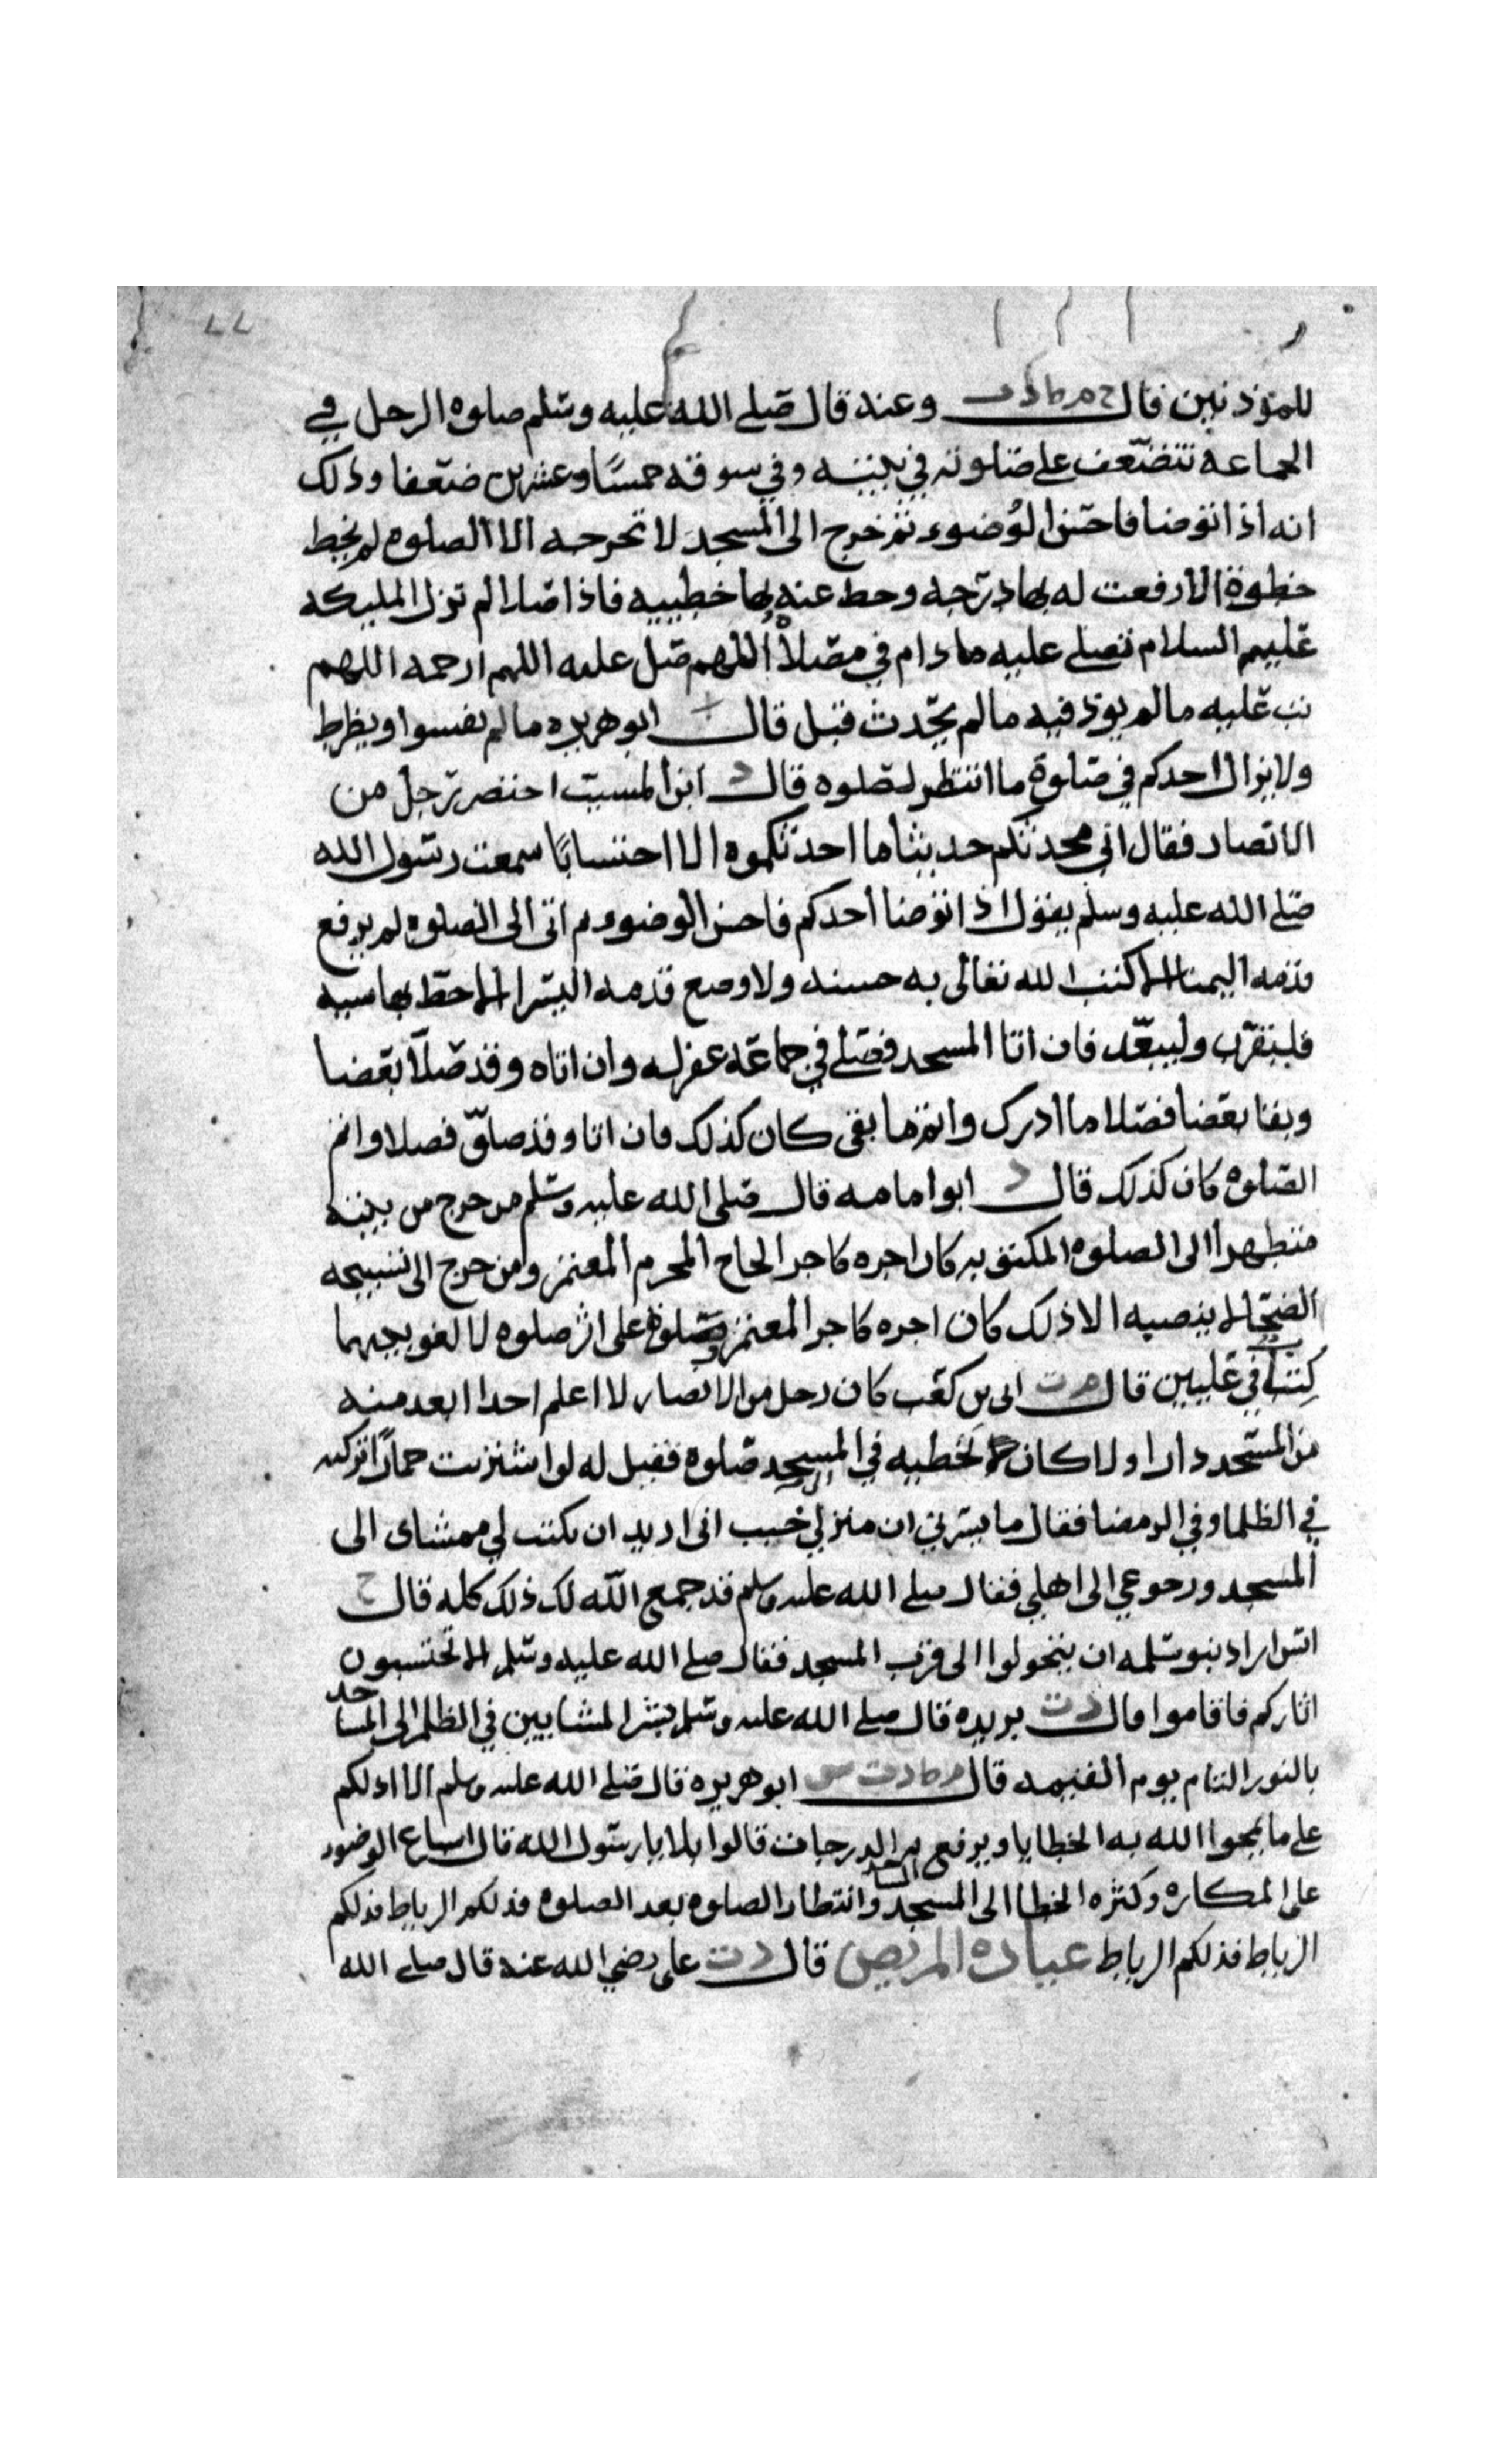 للموذنين قال خ م ط د ت وعنه قال صلى الله عليه وسلم صلوه الرجل في
الجماعة تتضعف على صلوته في بيته وفي سوقه خمسًا وعشرين ضعفا وذلك
انه اذا توضا فاحسن الوُضوء ثم خرج الى المسجد لا تخرجه الا الصلوه لم يخط
خطوة الا رفعت له بها درجه وحط عنه بها خطييه فاذا صلا لم تزل المليكه
عليهم السلام تصلي عليه ما دام في مصلاه اللهم صل عليه اللهم ارحمه اللهم
تب عليه ما لم يوذ فيه ما لم يحدث قيل قال ابو هريره ما لم يفسوا ويظرط
ولا يزال احدكم في صلوة ما انتظر لصلوه قال د ابن المسيب احتضر رجل من
الانصار فقال اني محدثكم حديثا ما احدثكموه الا احتسابًا سمعت رسول الله
صلى الله عليه وسلم يقول اذا توضا احدكم فاحسن الوضوء ثم اتى الى الصلوه لم يرفع
قدمه اليمنا الا كتب الله تعالى به حسنه ولا وضع قدمه اليسرا الا حط بها سيه
فليتقرب وليبعد فان اتا المسجد فصلى في جماعة غفر له وان اتاه وقد صلا بعضا
وبقا بعضا فصلا ما ادرك واتم ما بقى كان كذلك فان اتا وقد صلوا فصلا واتم
الصلوه كان كذلك قال د ابوا مامه قال صلى الله عليه وسلم من خرج من بيته
متطهرا الى الصلوه المكتوبه كان اجره كاجر الحاج المحرم المعتمز ومن خرج الى تسبيحه
الضحا لا ينصبه الا ذلك كان اجره كاجر المعتمز وصلوة على اثر صلوه لا لغو بينهما
كتب في عليين قال م ت ابي بن كعب كان رجل من الانصار لا اعلم احدا ابعد منه
من المسجد دارا ولا كان لا تخطيه في المسجد صلوه فقيل له لو اشتريت حمارًا تركبه
في الظلما وفي الرمضا فقال ما يسرني ان منزلي جنب اني اريد ان يكتب لي ممشاى الى
المسجد ورجوعي الى اهلي فقال صلى الله عليه وسلم قد جمع الله لك ذلك كله قال خ
انس اراد بنو سلمه ان يتحولوا الى قرب المسجد فقال صلى الله عليه وسلم الا تحتسبون
اثاركم فاقاموا قال د ت بريده قال صلى الله عليه وسلم بشر المشايين في الظلم الى المساجد
بالنور التام يوم القيمه قال م ط د ت س ابو هريره قال صلى الله عليه وسلم الا ادلكم
على ما يمحوا الله به الخطايا ويرفع به الدرجات قالوا بلا يا رسول الله قال اسباع الوضوء
على المكاره وكثره الخطا الى المسجد وانتظار الصلوه بعد الصلوه فذلكم الرباط فذلكم
الرباط فذلكم الرباط عيادة المريض قال د ت علي رضي الله عنه قال صلى الله